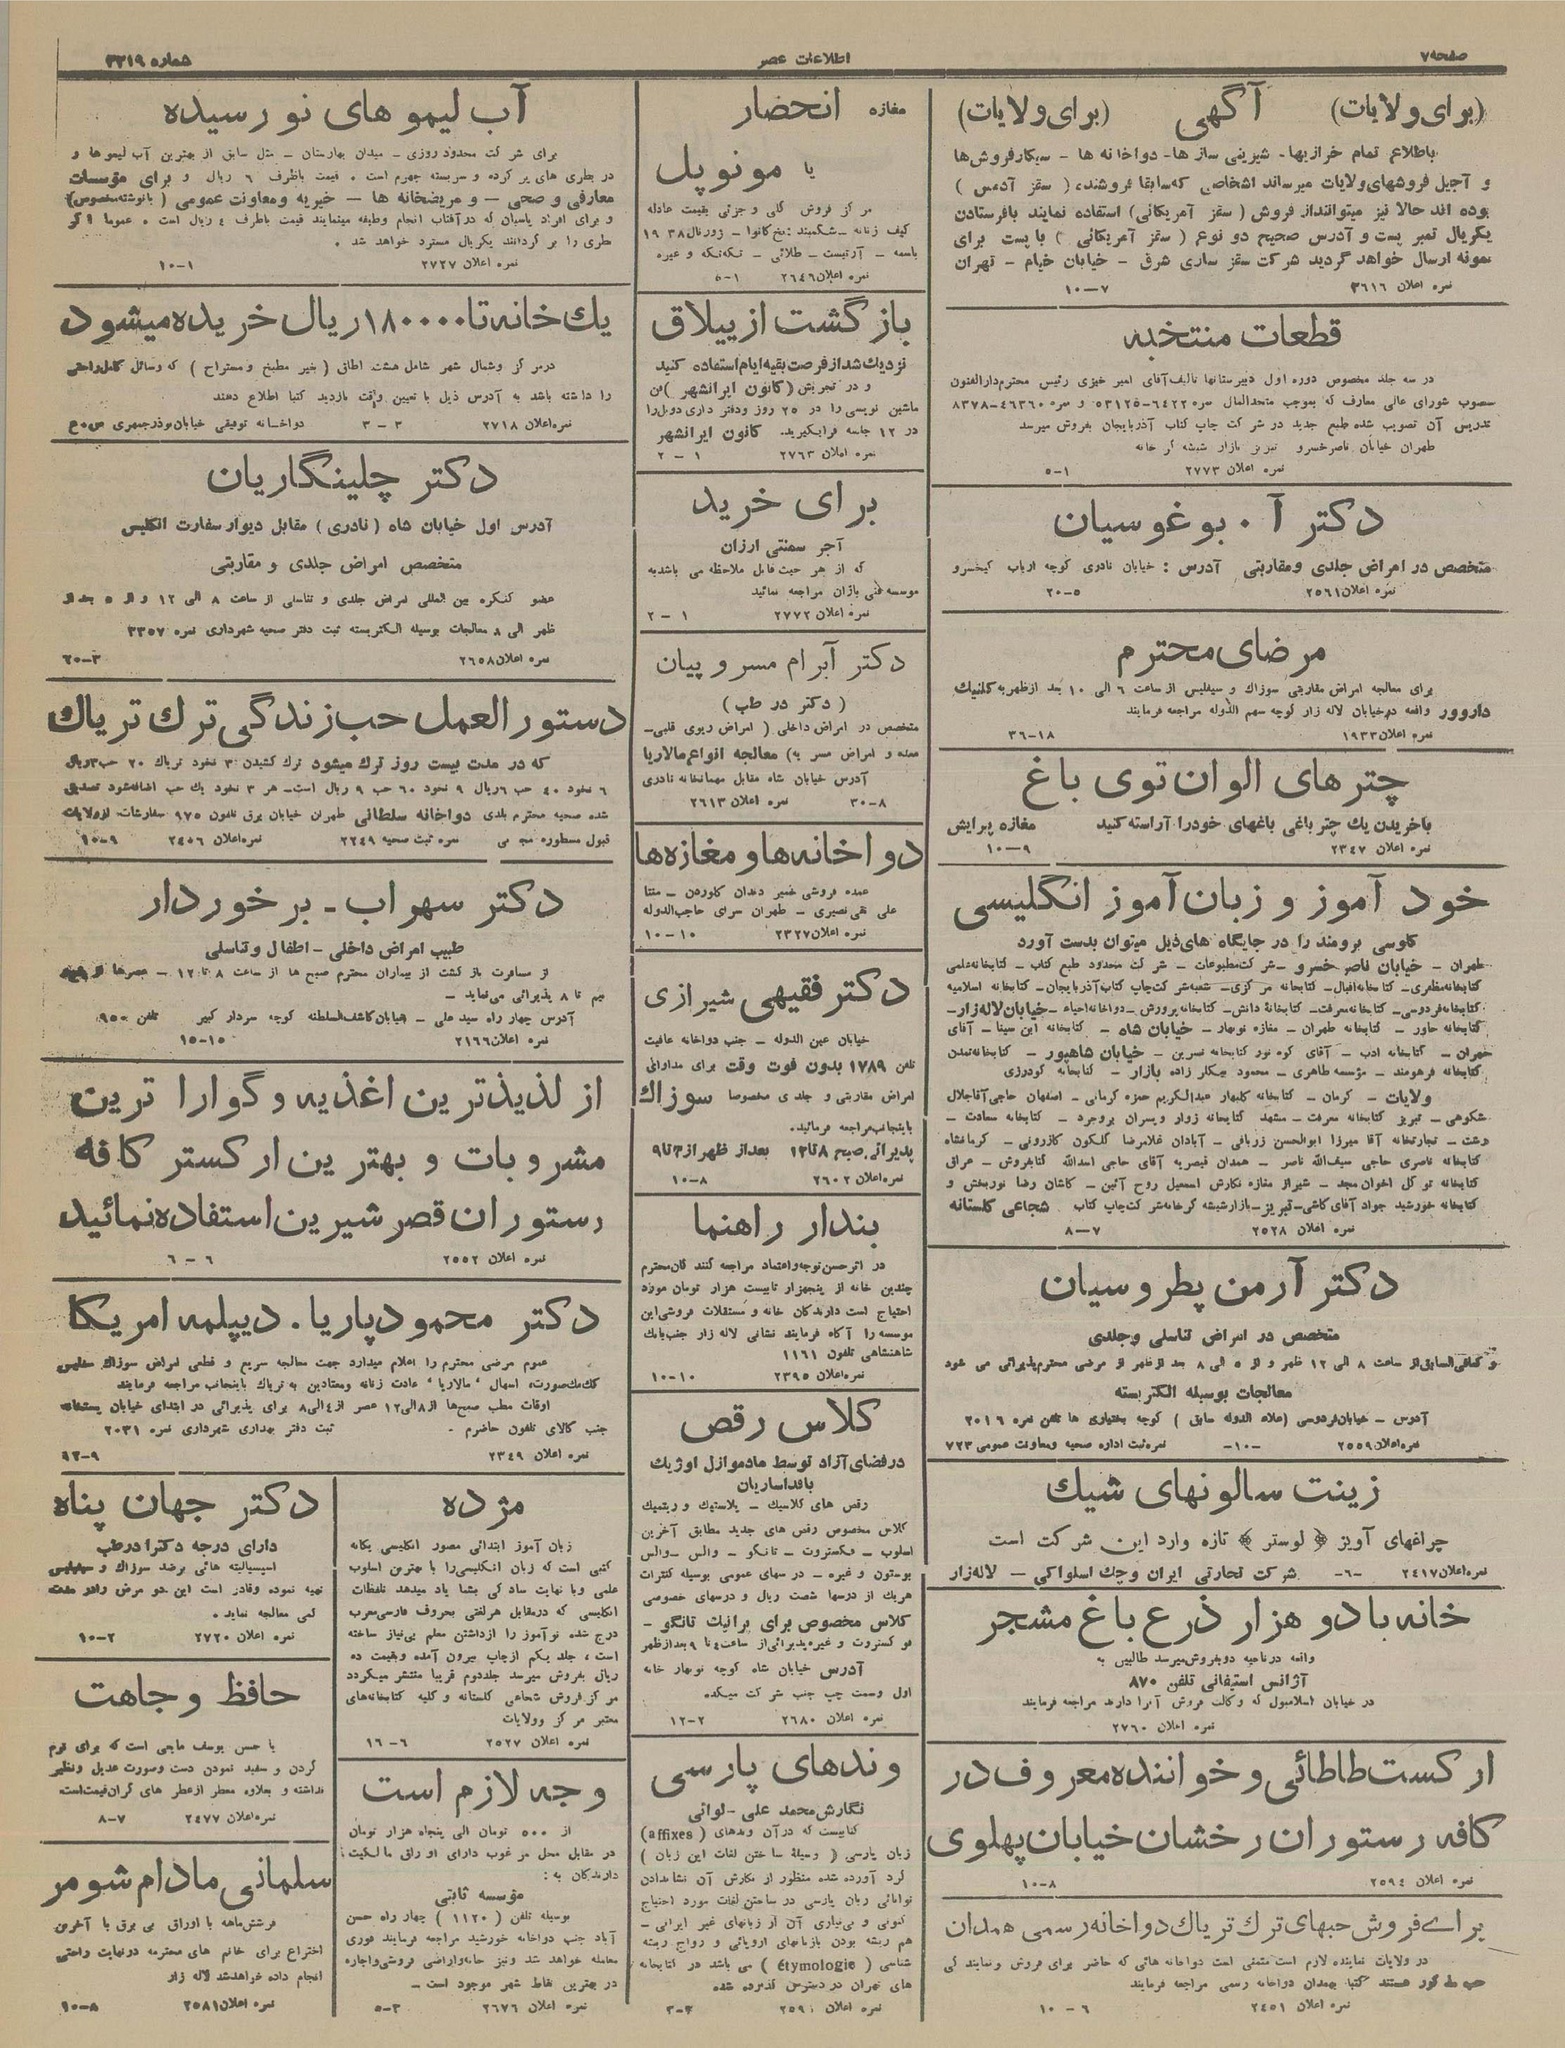 صفحه ۷
اطلاعات عصر
شماره ۳۳۱۹
(برای ولایات) آگهی (برای ولایات)
باطلاع تمام خرازیها- شیرینی سازها- دواخانه ها - سیگارفروش‌ها
و آجیل فروشهای ولایات میرساند اشخاصی که سابقا فروشنده ( سقز آدمس )
بوده اند حالا نیز میتوانند از فروش ( سقز آمریکائی ) استفاده نمایند بافرستادن
یکریال تمبر پست و آدرس صحیح دو نوع ( سقز آمریکائی ) با پست برای
نمونه ارسال خواهد گردید شرکت سقز سازی شرق - خیابان خیام - تهران
نمره اعلان ۳۶۱۶ ۷-۱۰
قطعات منتخبه
در سه جلد مخصوص دوره اول دبیرستانها تالیف آقای امیر خیزی رئیس محترم دارالفنون
مصوب شورای عالی معارف که بموجب متحدالمال نمره ۶۴۲۲-۵۳۱۲۵ و نمره ۴۶۳۶۰-۸۳۷۸
تدریس آن تصویب شده طبع جدید در شرکت چاپ کتاب آذربایجان بفروش میرسد
طهران خیابان ناصرخسرو تبریز بازار شیشه گر خانه
نمره اعلان ۲۷۷۳ ۱-۵
دکتر آ . بوغوسیان
متخصص در امراض جلدی و مقاربتی آدرس : خیابان نادری کوچه ارباب کیخسرو
نمره اعلان ۲۵۶۱ ۵-۲۰
مرضای محترم
برای معالجه امراض مقاربتی سوزاک و سیفلیس از ساعت ۶ الی ۱۰ بعد ازظهر به کلنیک
داروور واقعه در خیابان لاله زار کوچه سهم الدوله مراجعه فرمایند
نمره اعلان ۱۹۳۳ ۱۸-۳۶
چترهای الوان توی باغ
باخریدن یک چتر باغی باغهای خودرا آراسته کنید مغازه پیرایش
نمره اعلان ۲۳۴۷ ۹-۱۰
خود آموز و زبان آموز انگلیسی
کاوسی برومند را در جایگاه های ذیل میتوان بدست آورد
طهران - خیابان ناصر خسرو - شرکت مطبوعات - شرکت محدود طبع کتاب - کتابخانه علمی
کتابخانه مظفری - کتابخانه اقبال- کتابخانه مرکزی- شعبه شرکت چاپ کتاب آذربایجان- کتابخانه اسلامیه
کتابخانه فردوسی- کتابخانه معرفت- کتابخانهٔ دانش- کتابخانه پرورش - دواخانه احیاء - خیابان لاله زار-
کتابخانه خاور - کتابخانه طهران - مغازه نوبهار - خیابان شاه - کتابخانه ابن سینا - آقای
مهران - کتابخانه ادب - آقای کوه نور کتابخانه نسرین - خیابان شاهپور - کتابخانه تمدن
کتابخانه فرهومند - مؤسسه طاهری - محمود بیگلر زاده بازار - کتابخانه گودرزی
ولایات - کرمان - کتابخانه گلبهار عبدالکریم حمزه کرمانی - اصفهان حاجی آقا جلال
شکوهی - تبریز کتابخانه معرفت - مشهد کتابخانه زوار ویسران بروجرد - کتابخانه سعادت -
رشت - تجارتخانه آقا میرزا ابوالحسن زربافی - آبادان غلامرضا گلگون کازرونی - کرمانشاه
کتابخانه ناصری حاجی سیف‌الله ناصر - همدان قیصریه آقای حاجی اسدالله کتابفروش - عراق
کتابخانه توکل اخوان مجد - شیراز مغازه نگارش اسمعیل روح آئین - کاشان رضا نوربخش و
کتابخانه خورشید جواد آقای کاشی - تبریز - بازار شیشه گرخانه شرکت چاپ کتاب شجاعی گلستانه
نمره اعلان ۲۵۲۸ ۷-۸
دکتر آرمن پطروسیان
متخصص در امراض تناسلی و جلدی
و کمافی‌السابق از ساعت ۸ الی ۱۲ ظهر و از ۵ الی ۸ بعد ازظهر از مرضی محترم پذیرائی می شود
معالجات بوسیله الکتریسته
آدرس - خیابان فردوسی (علاء الدوله سابق ) کوچه بختیاری ها تلفن نمره ۲۰۱۶
نمره اعلان ۲۵۵۹ -۱۰- نمره ثبت اداره صحیه و معاونت عمومی ۷۲۳
زینت سالونهای شیک
چراغهای آویز ﴿ لوستر ﴾ تازه وارد این شرکت است
نمره اعلان ۲۴۱۷ -۶- شرکت تجارتی ایران وچک اسلواکی - لاله زار
خانه با دو هزار ذرع باغ مشجر
واقعه در ناحیه دو بفروش میرسد طالبین به
آژانس استیفانی تلفن ۸۷۰
در خیابان اسلامبول که وکالت فروش آنرا دارند مراجعه فرمایند
نمره اعلان ۲۷۶۰
ارکست طاطائی و خواننده معروف در
کافه رستوران رخشان خیابان پهلوی
نمره اعلان ۲۵۹۴ ۸-۱۰
برای فروش حبهای ترک تریاک دواخانه رسمی همدان
در ولایات نماینده لازم است متمنی است دواخانه هائی که حاضر برای فروش و نمایندگی
حب مذکور هستند کتبا بهمدان دواخانه رسمی مراجعه فرمایند
نمره اعلان ۲۴۵۱ ۶-۱۰
مغازه انحضار
یا مونوپل
مرکز فروش کلی و جزئی بقیمت عادله
کیف زنانه - شکمبند - ژورنال ۳۸ ۱۹
باسمه - آرتیست - طلائی - تکه‌تکه و غیره
نمره اعلان ۲۶۴۶ ۱-۵
بازگشت از ییلاق
نزدیک شد از فرصت بقیه ایام استفاده کنید
و در تجریش (کانون ایرانشهر ) فن
ماشین نویسی را در ۲۵ روز و دفترداری دوبل را
در ۱۲ جلسه فراگیرید. کانون ایرانشهر
نمره اعلان ۲۷۶۳ ۱-۲
برای خرید
آجر سمنتی ارزان
که از هر حیث قابل ملاحظه می باشد به
موسسه فنی باژان مراجعه نمائید
نمره اعلان ۲۷۷۲ ۱-۲
دکتر آبرام مسروپیان
( دکتر در طب )
متخصص در امراض داخلی ( امراض ریوی قلبی-
معده و امراض مسریه ) معالجه انواع مالاریا
آدرس خیابان شاه مقابل مهمانخانه نادری
نمره اعلان ۲۶۱۳ ۸-۳۰
دواخانه‌ها و مغازه‌ها
عمده فروشی خمیر دندان کلودن -
علی نقی نصیری - طهران سرای حاجب‌الدوله
نمره اعلان ۲۳۲۷ ۱۰-۱۰
دکتر فقیهی شیرازی
خیابان عین الدوله - جنب دواخانه عافیت
تلفن ۱۷۸۹ بدون فوت وقت برای مداوای
امراض مقاربتی و جلدی مخصوصا سوزاک
باینجانب مراجعه فرمائید.
پذیرائی صبح ۸ تا ۱۲ بعداز ظهر از ۳ تا ۹
نمره اعلان ۲۶۰۲ ۸-۱۰
بندار راهنما
در اثر حسن توجه و اعتماد مراجعه کنندگان محترم
چندین خانه از پنجهزار تا بیست هزار تومان مورد
احتیاج است دارندگان خانه و مستقلات فروشی این
موسسه را آگاه فرمایند نشانی لاله زار جنب بانک
شاهنشاهی تلفون ۱۱۶۱
نمره اعلان ۲۳۹۵ ۱۰-۱۰
کلاس رقص
در فضای آزاد توسط مادموازل اوژنیک
باغداساریان
رقص های کلاسیک - پلاستیک و ریتمیک
کلاس مخصوص رقص های جدید مطابق آخرین
اسلوب - فکستروت - تانگو - والس - والس
بوستون و غیره - درسهای عمومی بوسیله کنترات
هریک از درسها شصت ریال و درسهای خصوصی
کلاس مخصوص برای برانیک تانگو -
فوکستروت و غیره پذیرائی از ساعت ۴ تا ۹ بعدازظهر
آدرس خیابان شاه کوچه نوبهار خانه
اول وسمت چپ جنب شرکت میکده.
نمره اعلان ۲۶۸۰ ۲-۱۲
وندهای پارسی
نگارش محمد علی - لوائی
کتابیست که درآن وندهای (affixes)
زبان پارسی ( وسیلهٔ ساختن لغات این زبان )
گرد آورده شده منظور از نگارش آن نشاندادن
توانائی زبان پارسی در ساختن لغات مورد احتیاج
کنونی و بی‌نیازی آن از زبانهای غیر ایرانی -
هم ریشه بودن بازبانهای اروپائی و رواج ریشه
شناسی ( étymologie ) می باشد در کتابخانه
های تهران در دسترس گذارده شده
نمره اعلان ۳-۳
آب لیموهای نو رسیده
برای شرکت محدود روزی - میدان بهارستان - مثل سابق از بهترین آب لیموها و
در بطری های پر کرده و سربسته جهرم است . قیمت باظرف ۶ ریال و برای مؤسسات
معارفی و صحی - و مریضخانه ها - خیریه و معاونت عمومی ( بانوشته مخصوص)
و برای افراد پاسبان که درآفتاب انجام وظیفه مینمایند قیمت باظرف ۴ ریال است . عموما اگر
بطری را بر گردانند یکریال مسترد خواهد شد .
نمره اعلان ۲۷۲۷ ۱-۱۰
یک خانه تا ۱۸۰۰۰۰ ریال خریده میشود
درمرکز وشمال شهر شامل هشت اطاق ( بغیر مطبخ و مستراح ) که وسائل کامل راحتی
را داشته باشد به آدرس ذیل با تعیین وقت بازدید کتبا اطلاع دهند
نمره اعلان ۲۷۱۸ ۳-۳ دواخانه توفیقی خیابان بوذرجمهری
دکتر چلینگاریان
آدرس اول خیابان شاه (نادری ) مقابل دیوار سفارت انگلیس
متخصص امراض جلدی و مقاربتی
عضو کنگره بین المللی امراض جلدی و تناسلی از ساعت ۸ الی ۱۲ و از ۵ بعد از
ظهر الی ۸ معالجات بوسیله الکتریسته ثبت دفتر صحیه شهرداری نمره ۳۳۵۷
نمره اعلان ۲۶۵۸ ۳-۲۰
دستور العمل حب زندگی ترک تریاک
که در مدت بیست روز ترک میشود ترک کشیدن ۳ نخود تریاک ۲۰ حب ۳ ریال
۶ نخود ۴۰ حب ۶ ریال ۹ نخود ۶۰ حب ۹ ریال است- هر ۳ نخود یک حب اضافه شود تصدیق
شده صحیه محترم بلدی دواخانه سلطانی طهران خیابان برق تلفون ۹۷۵ سفارشات ازولایات
قبول مسطوره می نمره ثبت صحیه ۲۲۴۹ نمره اعلان ۲۴۵۶ ۹-۱۰
دکتر سهراب - برخوردار
طبیب امراض داخلی - اطفال و تناسلی
از مسافرت بازگشت از بیماران محترم صبح ها از ساعت ۸ تا ۱۲ - عصرها از
نیم تا ۸ پذیرائی می‌نماید -
آدرس چهار راه سید علی - خیابان کاشف‌السلطنه کوچه سردار کبیر تلفن ۹۵۰
نمره اعلان ۲۱۶۶ ۱۵-۱۵
از لذیذترین اغذیه و گواراترین
مشروبات و بهترین ارکستر کافه
رستوران قصرشیرین استفاده نمائید
نمره اعلان ۲۵۵۲ ۶-۶
دکتر محمود پاریا . دیپلمه امریکا
عموم مرضی محترم را اعلام میدارد جهت معالجه سریع و قطعی امراض سوزاک سفلیس
کک‌مک صورت، اسهال ٬ مالاریا ٬ عادت زنانه ومعتادین به تریاک باینجانب مراجعه فرمایند
اوقات مطب صبح‌ها از ۸ الی ۱۲ عصر از ۴ الی ۸ برای پذیرائی در ابتدای خیابان پستخانه
جنب کالای تلفون حاضرم . ثبت دفتر بهداری شهرداری نمره ۲۰۳۱
نمره اعلان ۲۳۴۹ ۹-۹۲
مژده
زبان آموز ابتدائی مصور انگلیسی یگانه
کتبی است که زبان انگلیسی را با بهترین اسلوب
علمی وبا نهایت سادگی بشما یاد میدهد تلفظات
انگلیسی که درمقابل هرلغتی بحروف فارسی معرب
درج شده نوآموز را ازداشتن معلم بی‌نیاز ساخته
است ، جلد یکم ازچاپ بیرون آمده وبقیمت ده
ریال بفروش میرسد جلددوم قریبا منتشر میگردد
مرکز فروش شجاعی گلستانه و کلیه کتابخانه‌های
معتبر مرکز وولایات
نمره اعلان ۲۵۲۷ ۶-۱۶
وجه لازم است
از ۵۰۰ تومان الی پنجاه هزار تومان
در مقابل محل مرغوب دارای اوراق مالکیت
دارندگان به :
مؤسسه ثابتی
بوسیله تلفن ( ۱۱۲۰ ) چهار راه حسن
آباد جنب دواخانه خورشید مراجعه فرمایند فوری
معامله خواهد شد ونیز خانه واراضی فروشی واجاره
در بهترین نقاط شهر موجود است -
نمره اعلان ۲۶۷۶ ۳-۵
دکتر جهان پناه
دارای درجه دکترا درطب
اسپسیالیته هائی برضد سوزاک و سفلیس
تهیه نموده وقادر است این دو مرض را در مدت
کمی معالجه نماید .
نمره اعلان ۲۷۲۰ ۲-۱۰
حافظ وجاهت
یا حسن یوسف مایعی است که برای نرم
کردن و سفید نمودن دست وصورت عدیل ونظیر
نداشته و بعلاوه معطر ازعطر های گران قیمت است
نمره اعلان ۲۴۷۷ ۷-۸
سلمانی مادام شومر
فرشش‌ماهه با اوراق بی برق با آخرین
اختراع برای خانم های محترمه درنهایت راحتی
انجام داده خواهد شد لاله زار
نمره اعلان ۲۵۸۱ ۸-۱۰